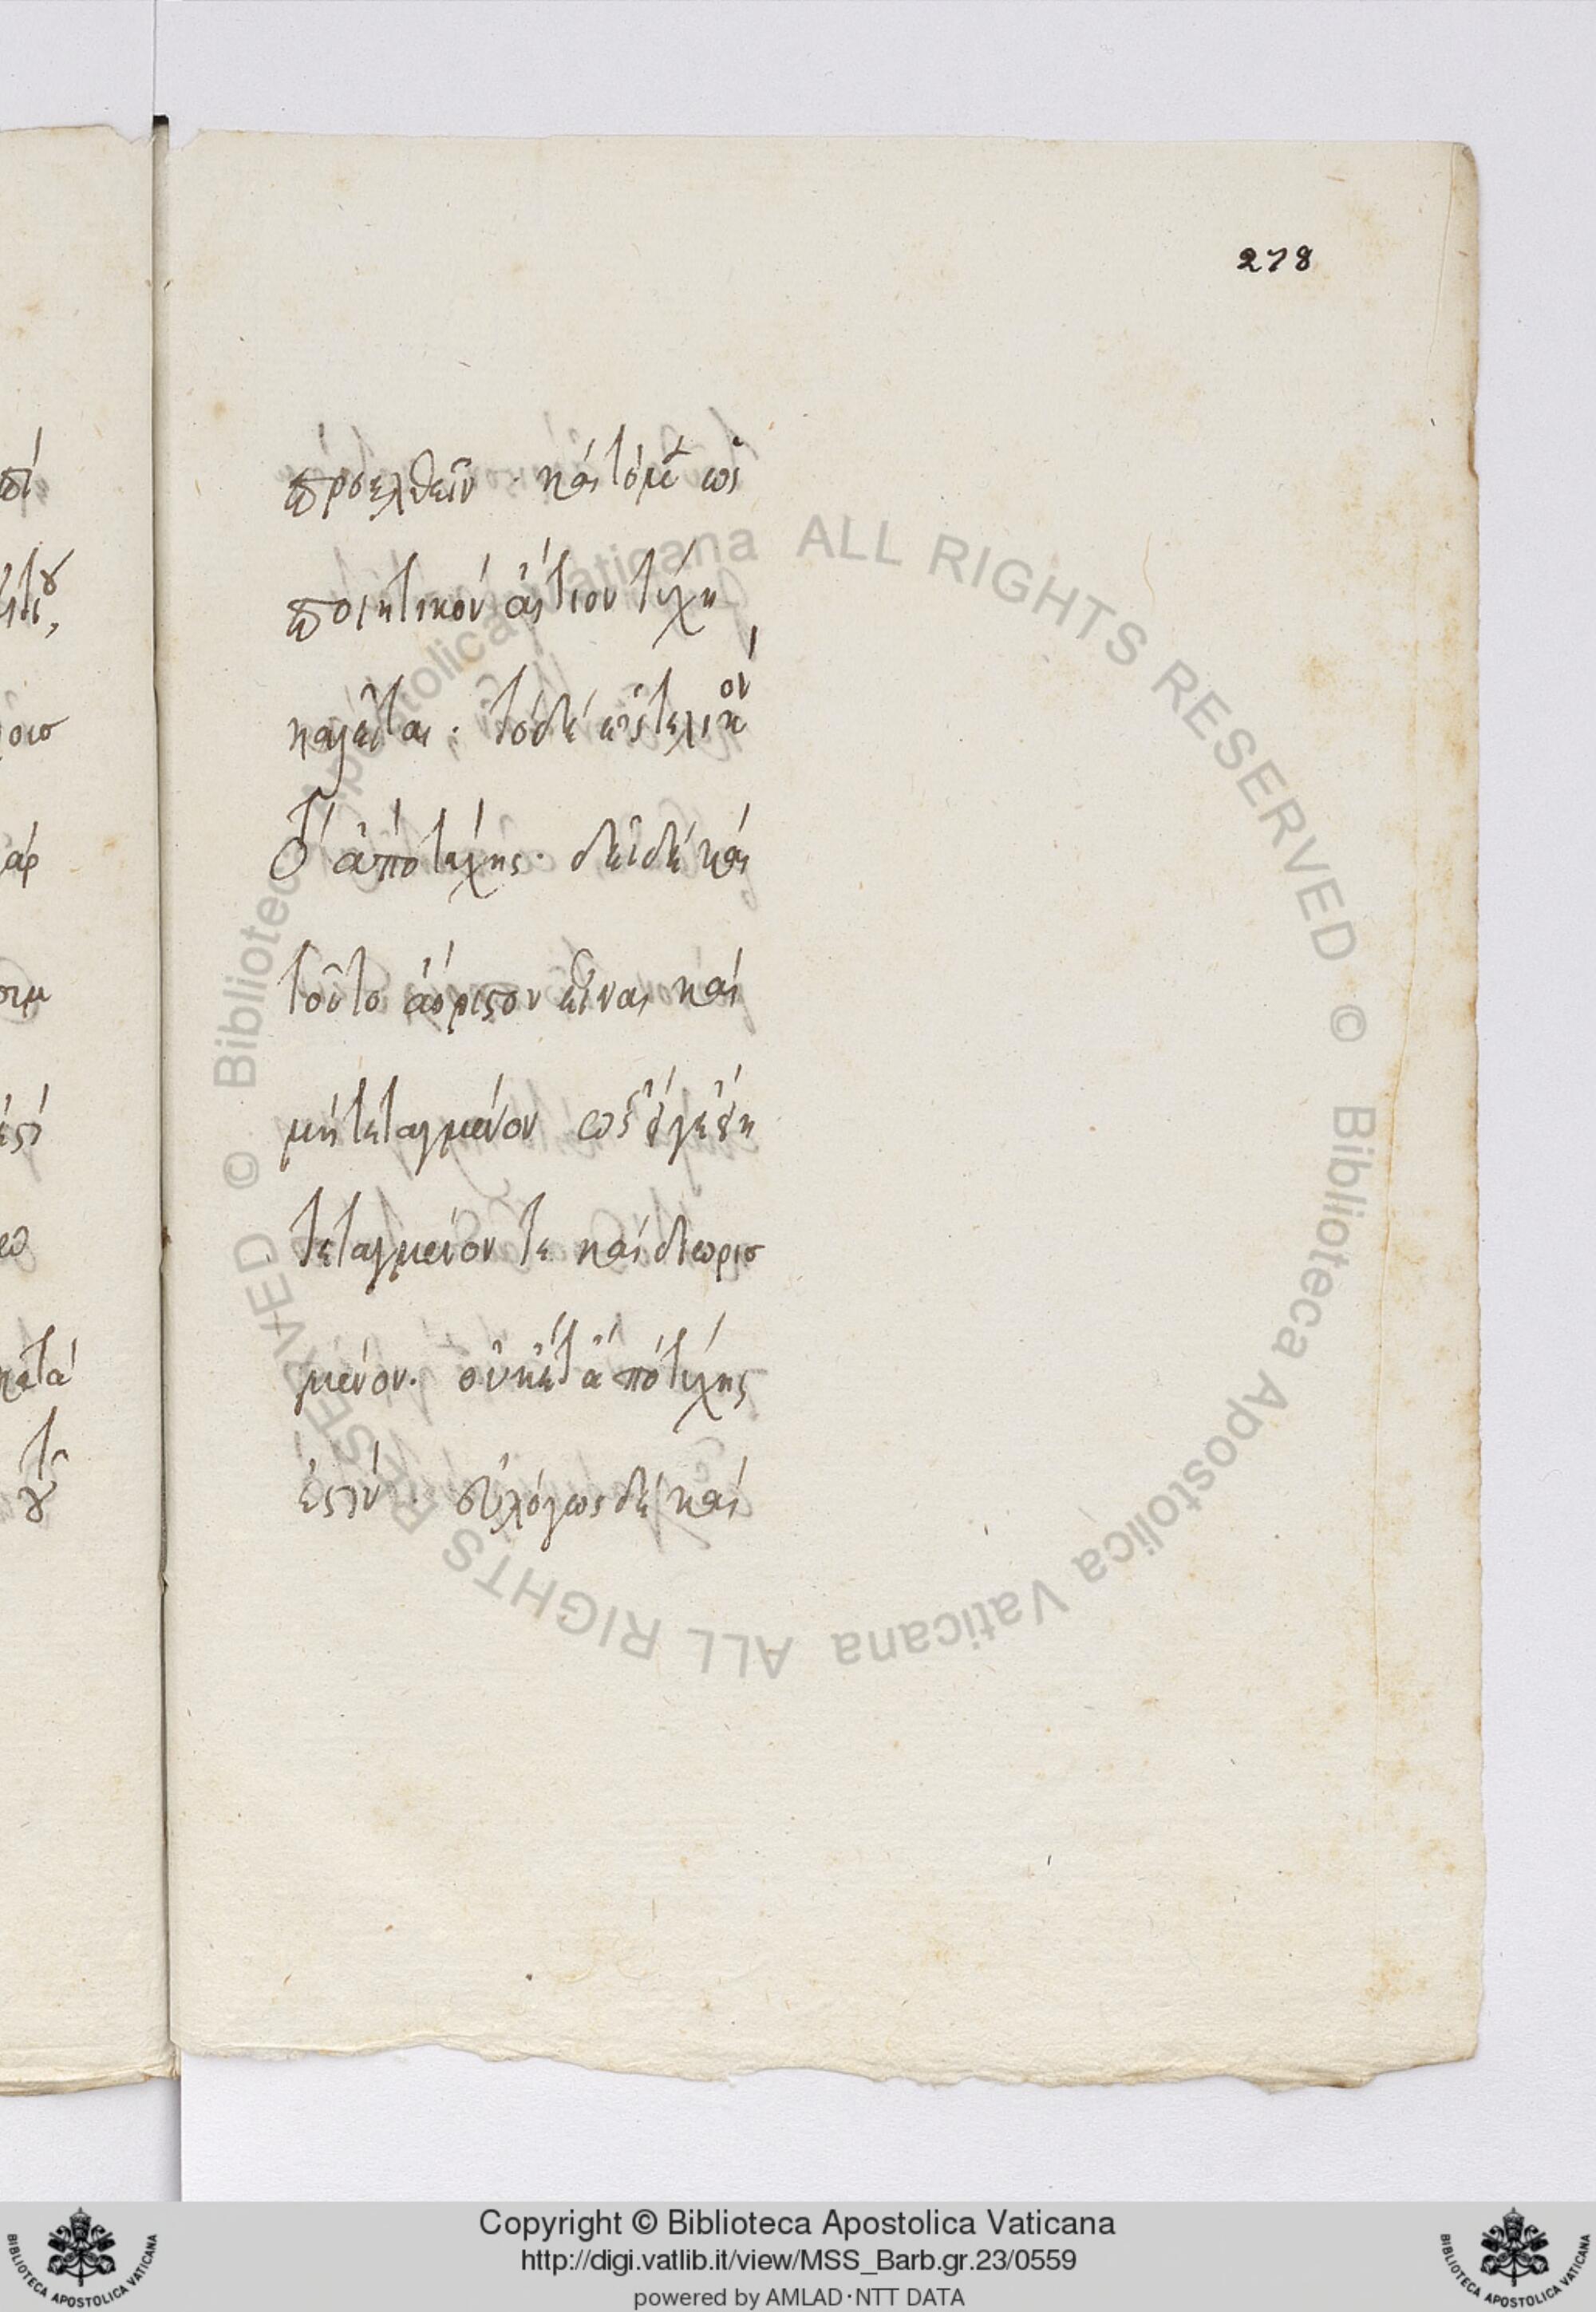 278
προσελθεῖν · καὶ τὸ μὲν ὡς
ποιητικὸν αἴτιον τύχη
καλεῖται · τὸ δὲ ὡς τελικὸν
τὸ ἀπὸ τύχης · δεῖ δὲ καὶ
τοῦτο ἀόριστον εἶναι καὶ
μὴ τεταγμένον ὡς
τεταγμένον τε καὶ διωρισ
μένον. οὐκέτ ἀπὸ τύχης
ἐστίν · εὐλόγως δὲ καὶ
Copyright © Biblioteca Apostolica Vaticana
http://digi.vatlib.it/view/MSS_Barb.gr.23/0559
powered by AMLAD·NTT DATA
© Biblioteca Apostolica Vaticana ALL RIGHTS RESERVED
© Biblioteca Apostolica Vaticana ALL RIGHTS RESERVED
BIBLIOTECA APOSTOLICA VATICANA
BIBLIOTECA APOSTOLICA VATICANA